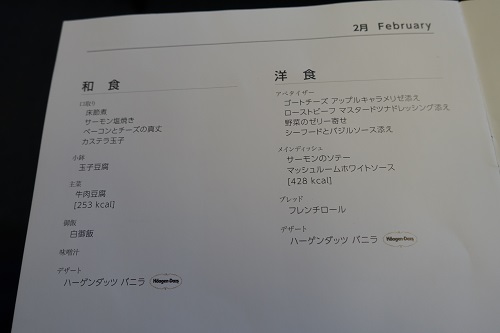 2月 February
和 食
口取り
床節煮
サーモン塩焼き
ベーコンとチーズの真丈
カステラ玉子
小鉢
玉子豆腐
主菜
牛肉豆腐
[253 kcal]
御飯
白御飯
味噌汁
デザート
ハーゲンダッツ バニラ Häagen-Dazs
洋 食
アペタイザー
ゴートチーズ アップルキャラメリゼ添え
ローストビーフ マスタードツナドレッシング添え
野菜のゼリー寄せ
シーフードとバジルソース添え
メインディッシュ
サーモンのソテー
マッシュルームホワイトソース
[428 kcal]
ブレッド
フレンチロール
デザート
ハーゲンダッツ バニラ Häagen-Dazs